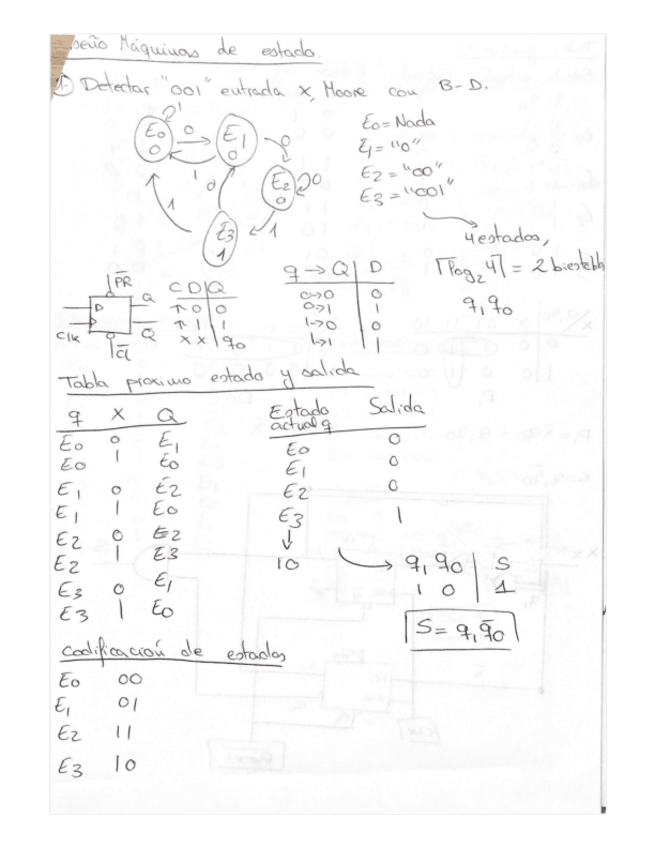 seño Máquinas de estado.
1- Detectar "001" entrada X, Moore con B-D.
E0 0
E1 0
E2 0
E3 1
1 0 1 0 0 1 0 1
E0 = Nada
E1 = "0"
E2 = "00"
E3 = "001"
4 estados,
⌈log2 4⌉ = 2 biestables
q1 q0
PR
D Q
Clk Q̄
CL
C D | Q
↑ 0 | 0
↑ 1 | 1
x x | q0
q → Q | D
0→0 0
0→1 1
1→0 0
1→1 1
Tabla proximo estado y salida
q X Q
E0 0 E1
E0 1 E0
E1 0 E2
E1 1 E0
E2 0 E2
E2 1 E3
E3 0 E1
E3 1 E0
Estado actual q Salida
E0 0
E1 0
E2 0
E3 1
↓
10
q1 q0 | S
1 0 | 1
S = q1 q̄0
Codificación de estados
E0 00
E1 01
E2 11
E3 10